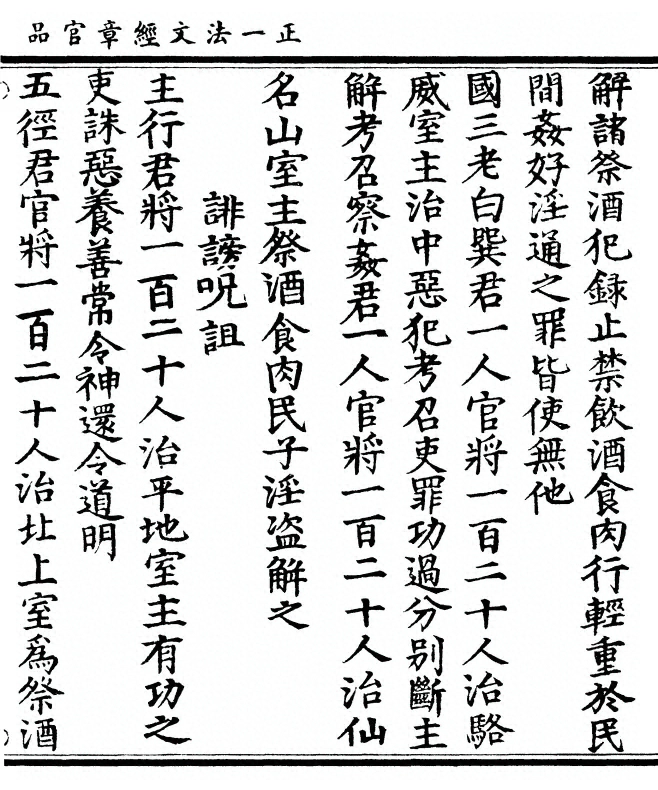 正一法文經章官品
解諸祭酒犯録止禁飲酒食肉行輕重於民
間姦好淫通之罪皆使無他
國三老白㢲君一人官將一百二十人治駱
威室主治中惡犯考召吏罪功過分别斷主
解考召察姦君一人官將一百二十人治仙
名山室主祭酒食肉民子淫盜解之
誹謗呪詛
主行君將一百二十人治平地室主有功之
吏誅惡養善常令神還令道明
五徑君官將一百二十人治圵上室爲祭酒